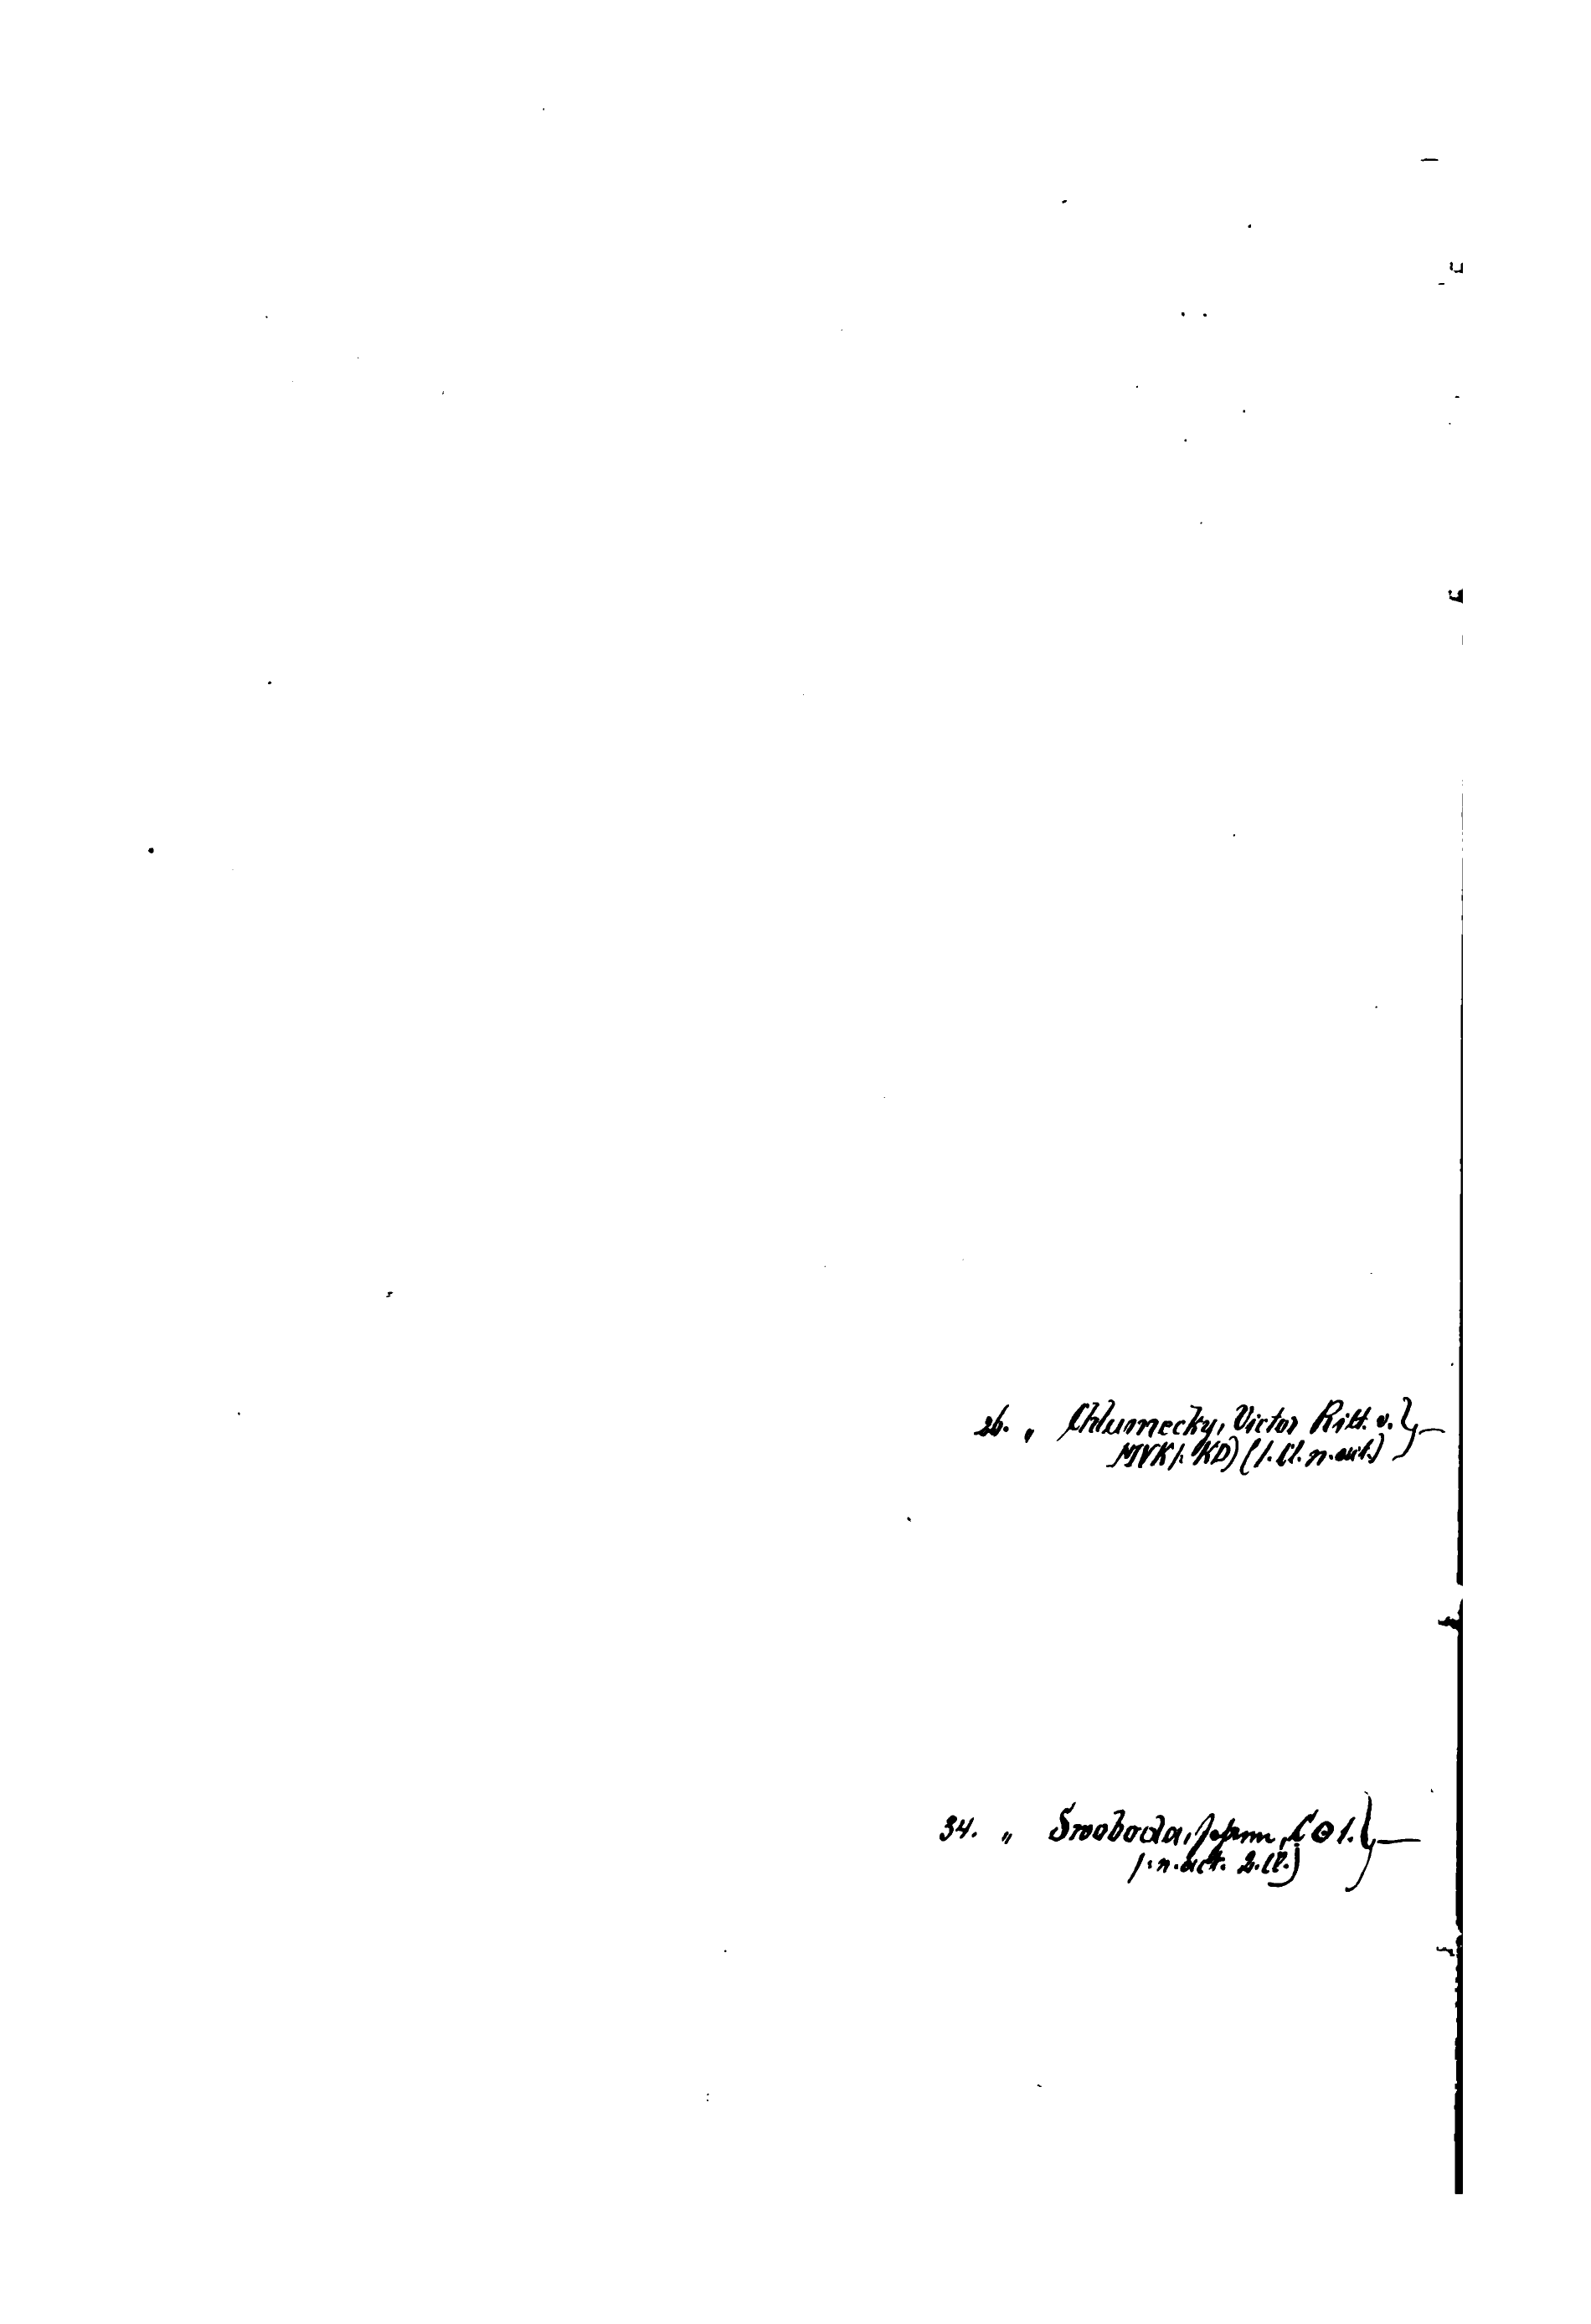 26. „ Chlumecky, Victor Ritt. v.
MVK /. KD) (1. Cl. n. act.)
34. „ Swoboda, Johann,
/. n. act. 2. Cl.)